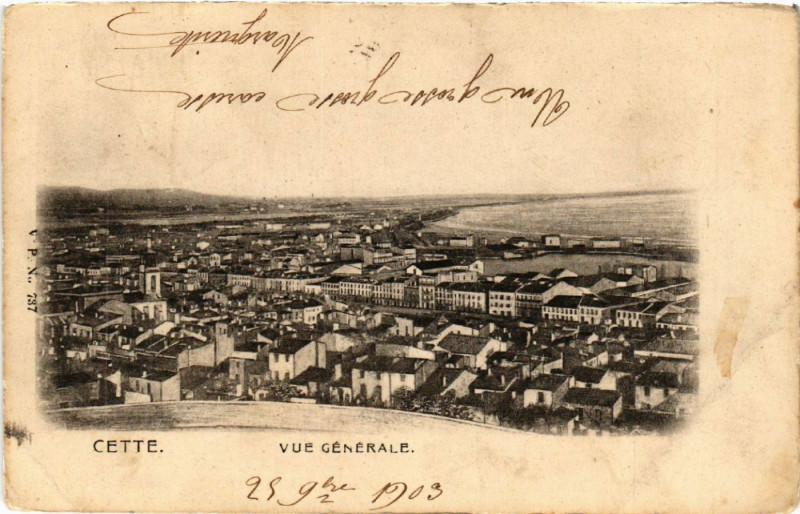 Une grosse grosse caresse
Marguerite
V. P. N., 737
CETTE.
VUE GÉNÉRALE.
25 9bre 1903